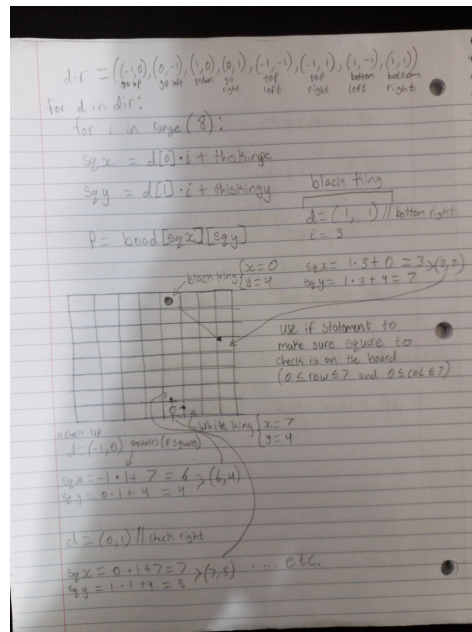 dir = ((-1,0),(0,-1),(1,0),(0,1),(-1,-1),(-1,1),(1,-1),(1,1))
go up go left go down go right top left top right bottom left bottom right
for d in dir:
for i in range (8):
sqx = d[0]·i + thiskingx
sqy = d[1]·i + thiskingy
P = board[sqx][sqy]
black king
d = (1, 1) // bottom right
i = 3
sqx = 1·3+0 = 3 > (3,7)
sqy = 1·3+4 = 7
black king { x=0
y=4
use if statement to
make sure square to
check is on the board
(0 ≤ row ≤ 7 and 0 ≤ col ≤ 7)
white king { x=7
y=4
check up
d = (-1,0)
sqx = -1·1+7 = 6 > (6,4)
sqy = 0·1+4 = 4
d = (0,1) // check right
sqx = 0·1+7 = 7 > (7,5) .... etc.
sqy = 1·1+4 = 5